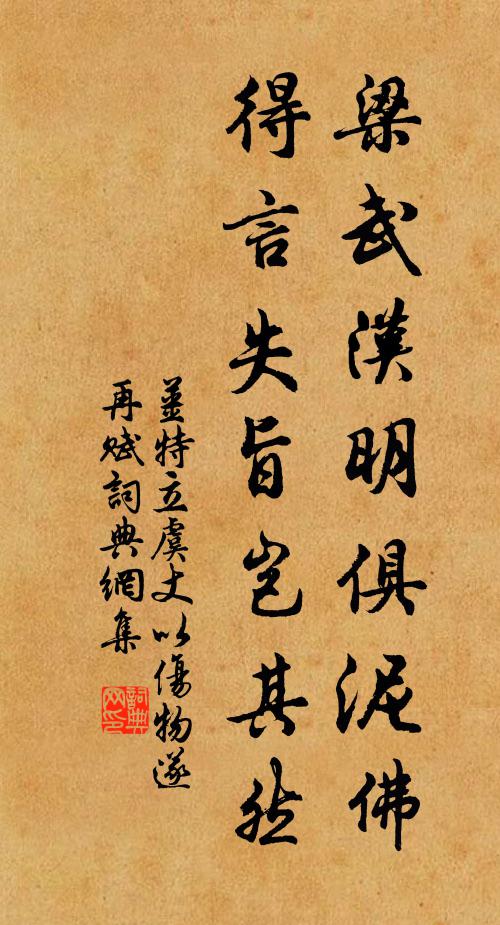 梁武漢明俱泥佛
得言失旨豈其然
姜特立虞丈以傷物遂
再賦詞典網集
詞典網印